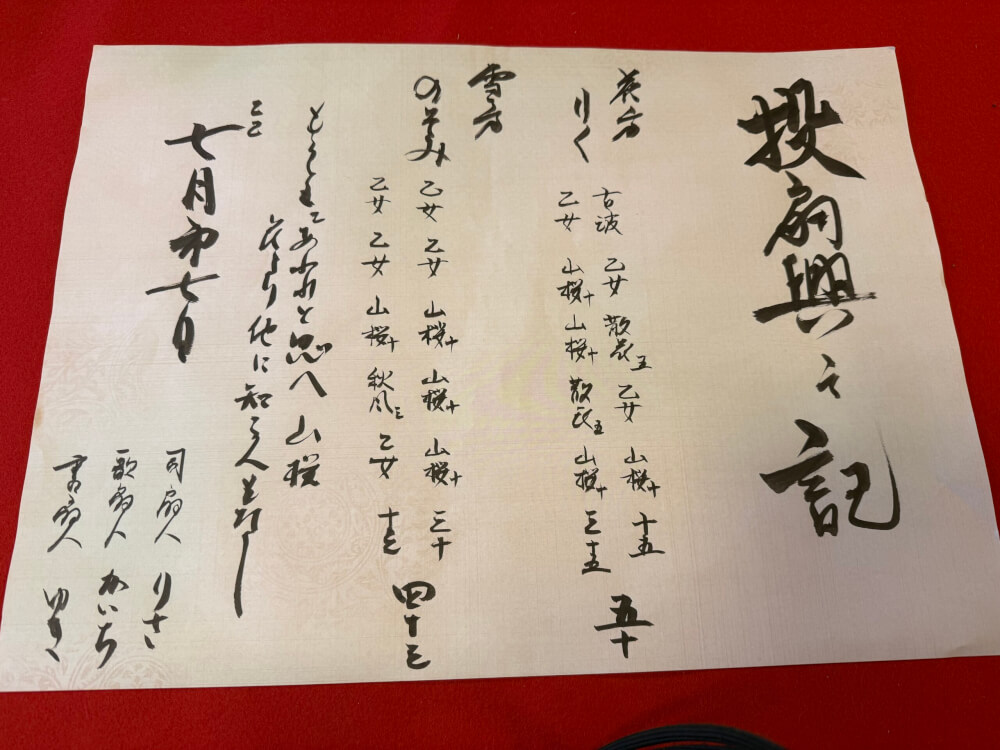 投扇興之記
花方
りく
古波 乙女 散花五 乙女 山桜十 十五
乙女 山桜十 山桜十 散花五 山桜十 三十五
五十
雪方
のぞみ
乙女 乙女 山桜十 山桜十 山桜十 三十
乙女 乙女 山桜十 秋風三 乙女 十三
四十三
もろともにあわれと思へ山桜
花より他に知る人も那し
七月初七日
司扇人 りさ
歌扇人 かいち
書扇人 ゆき